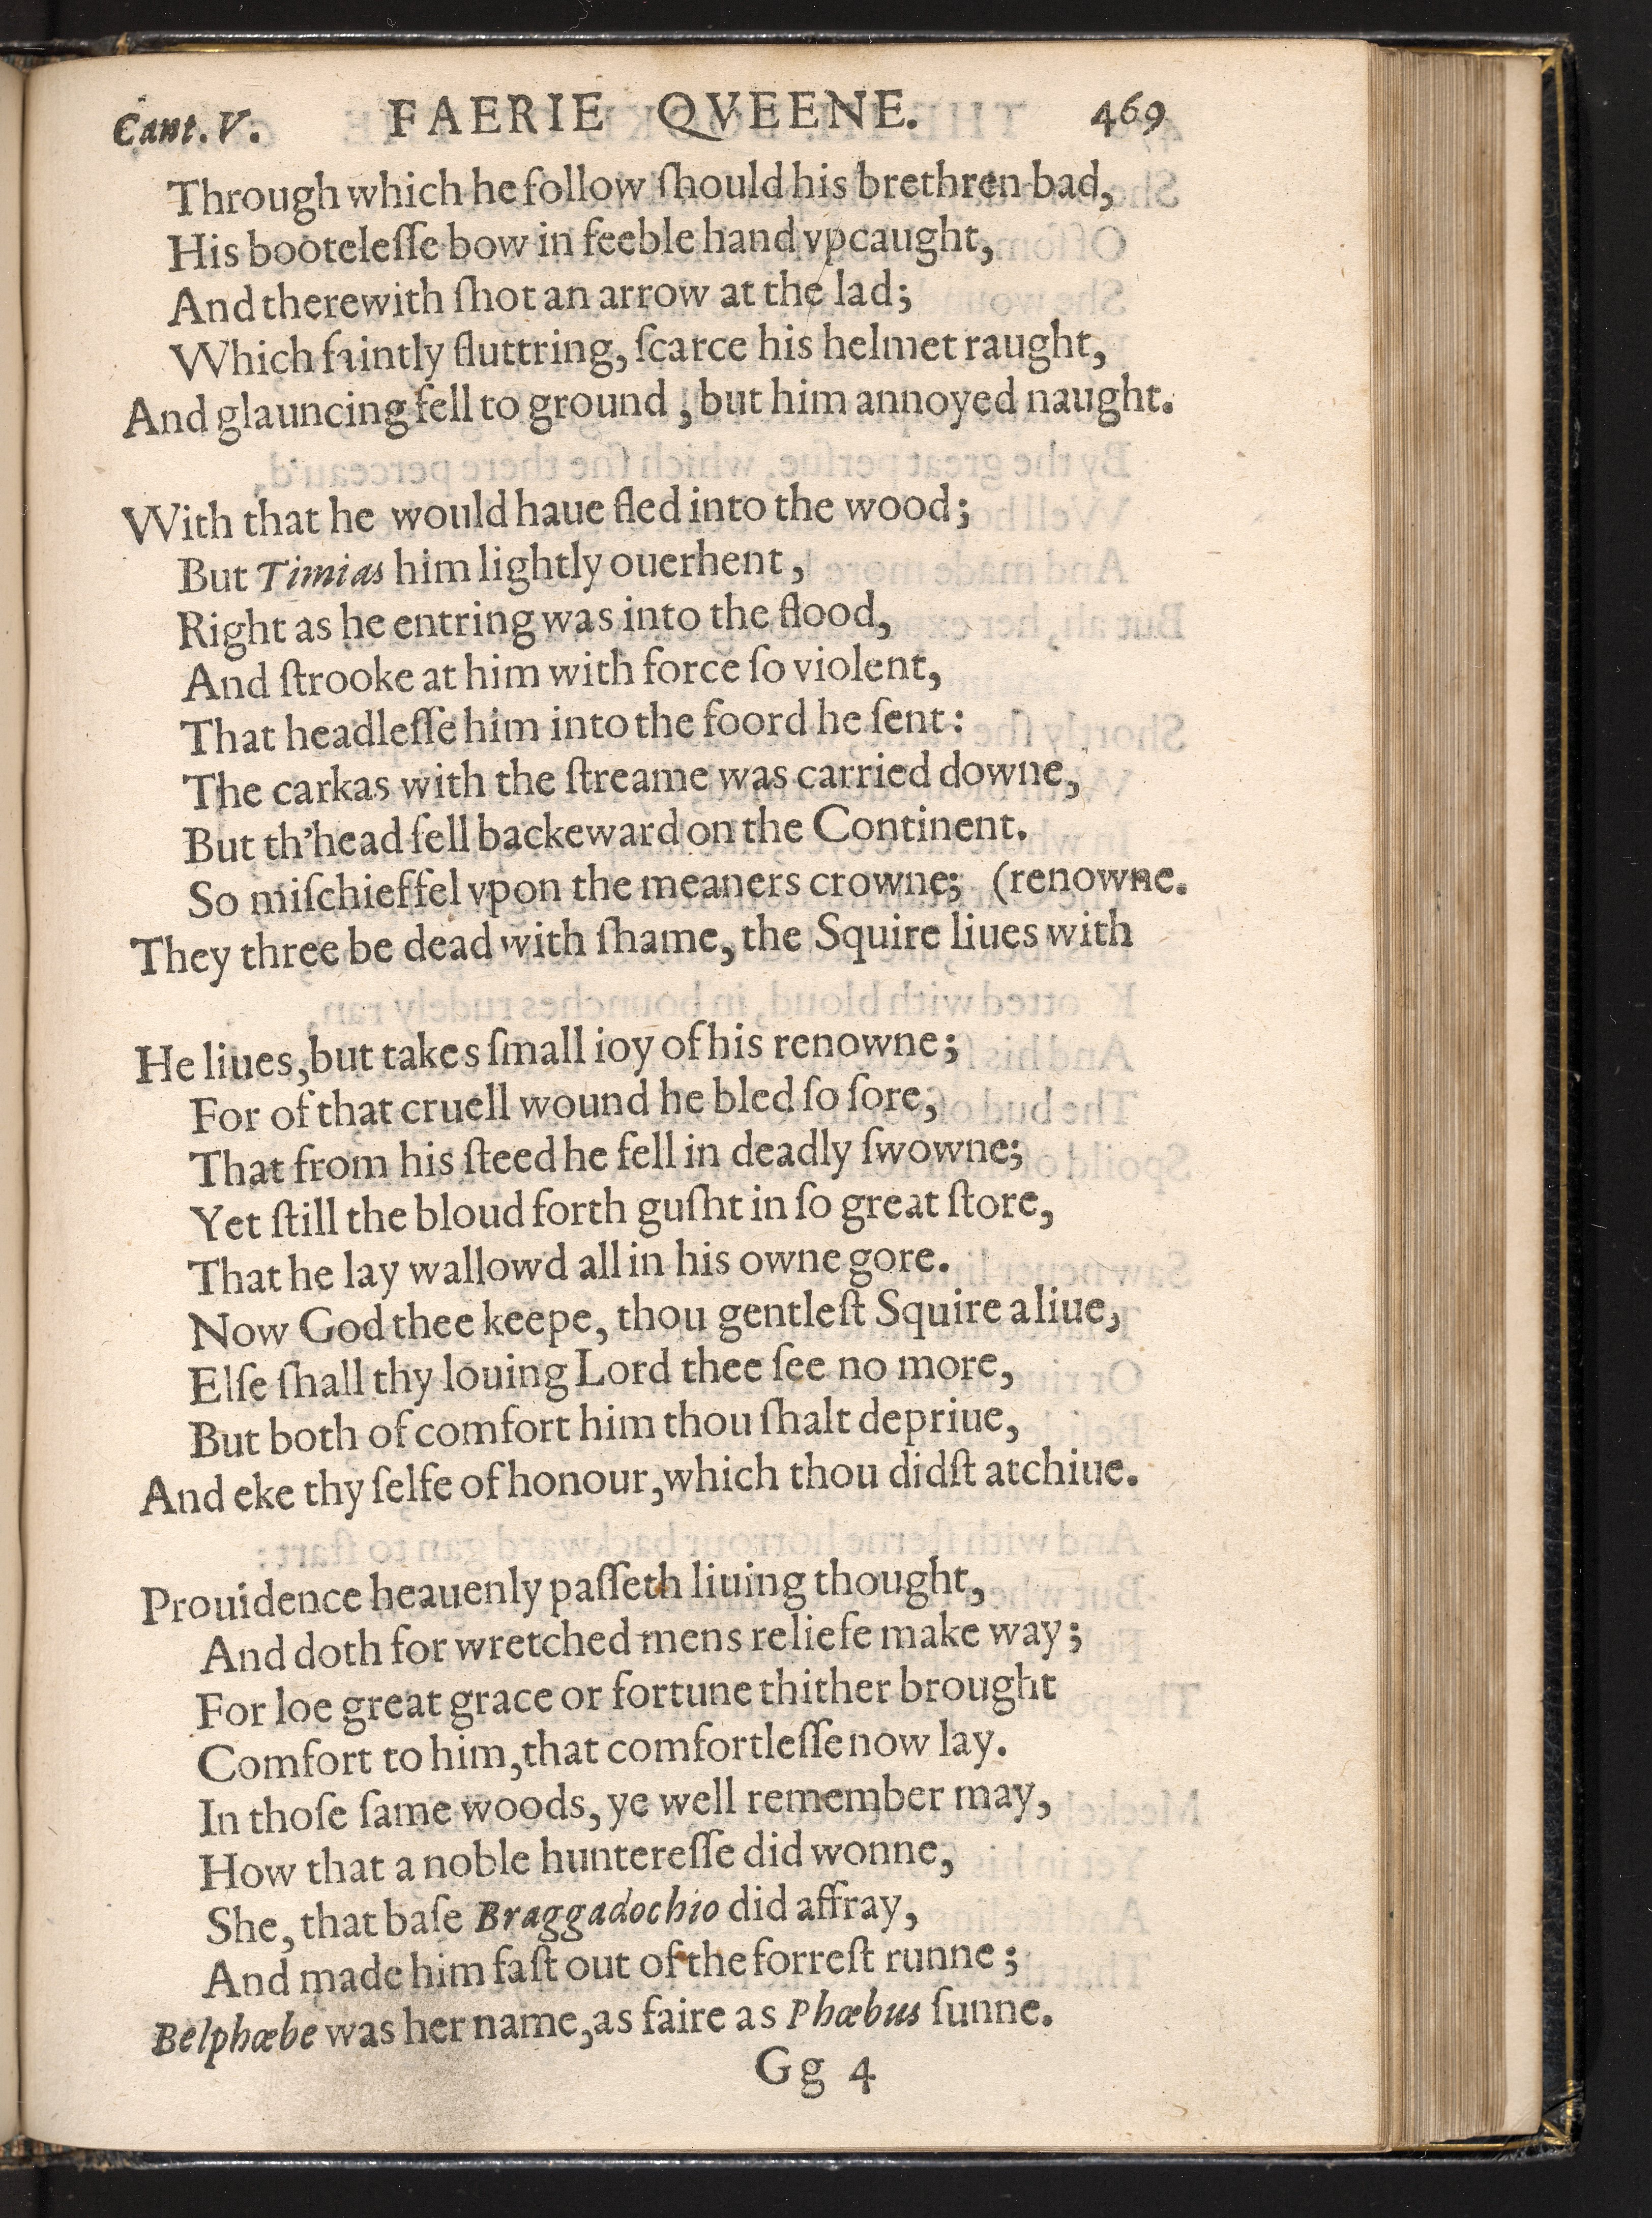 Cant. V. FAERIE QVEENE. 469
Through which he follow ſhould his brethren bad,
His booteleſſe bow in feeble hand vpcaught,
And therewith ſhot an arrow at the lad;
Which faintly fluttring, ſcarce his helmet raught,
And glauncing fell to ground, but him annoyed naught.
With that he would haue fled into the wood;
But Timias him lightly ouerhent,
Right as he entring was into the flood,
And ſtrooke at him with force ſo violent,
That headleſſe him into the foord he ſent:
The carkas with the ſtreame was carried downe,
But th'head fell backeward on the Continent.
So miſchief fel vpon the meaners crowne; (renowne.
They three be dead with ſhame, the Squire liues with
He liues, but takes ſmall ioy of his renowne;
For of that cruell wound he bled ſo ſore,
That from his ſteed he fell in deadly ſwowne;
Yet ſtill the bloud forth guſht in ſo great ſtore,
That he lay wallowd all in his owne gore.
Now God thee keepe, thou gentleſt Squire aliue,
Elſe ſhall thy louing Lord thee ſee no more,
But both of comfort him thou ſhalt depriue,
And eke thy ſelfe of honour, which thou didſt atchiue.
Prouidence heauenly paſſeth liuing thought,
And doth for wretched mens reliefe make way;
For loe great grace or fortune thither brought
Comfort to him, that comfortleſſe now lay.
In thoſe ſame woods, ye well remember may,
How that a noble huntereſſe did wonne,
She, that baſe Braggadochio did affray,
And made him faſt out of the forreſt runne;
Belphœbe was her name, as faire as Phœbus ſunne.
Gg 4